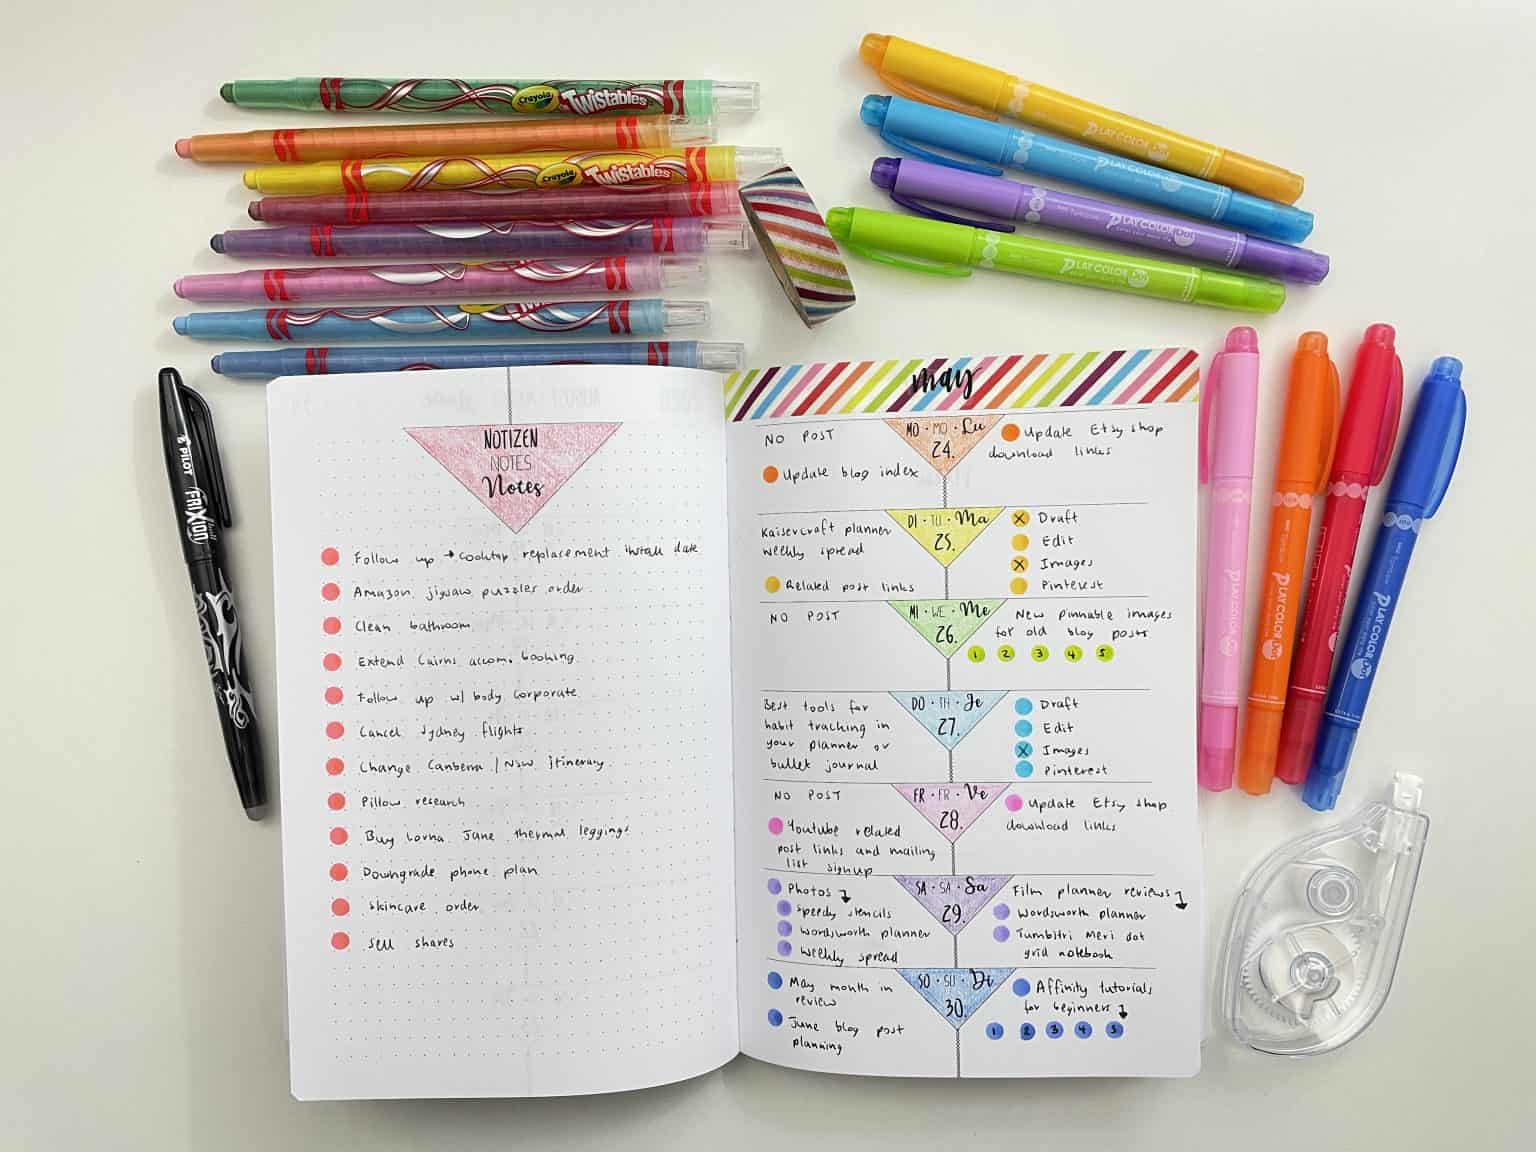 Crayola Twistables
Crayola Twistables
PLAY COLOR
PLAY COLOR
PLAY COLOR Dot
PLAY COLOR
PILOT
FRIXION
NOTIZEN
NOTES
Notes
Follow up → cooktop replacement install date
Amazon jigsaw puzzles order
Clean bathroom
Extend Cairns accom. booking
Follow up w/ body corporate
Cancel Sydney flights
Change Canberra / NSW itinerary
Pillow research
Buy Lorna Jane thermal leggings
Downgrade phone plan
Skincare order
Sell shares
may
NO POST
Update blog index
MO • MO • Lu
24.
Update Etsy shop
download links
Kaisercraft planner
weekly spread
Related post links
DI • TU • Ma
25.
X Draft
Edit
X Images
Pinterest
NO POST
MI • WE • Me
26.
New pinnable images
for old blog posts
1 2 3 4 5
Best tools for
habit tracking in
your planner or
bullet journal
DO • TH • Je
27.
Draft
Edit
X Images
Pinterest
NO POST
Youtube related
post links and mailing
list signup
FR • FR • Ve
28.
Update Etsy shop
download links
Photos
Speedy stencils
Wordsworth planner
Weekly spread
SA • SA • Sa
29.
Film planner reviews
Wordsworth planner
Tumbitri Meri dot
grid notebook
May month in
review
June blog post
planning
SO • SU • Di
30.
Affinity tutorials
for beginners
1 2 3 4 5
PLAY COLOR Dot
PLAY COLOR Dot
PLAY COLOR Dot